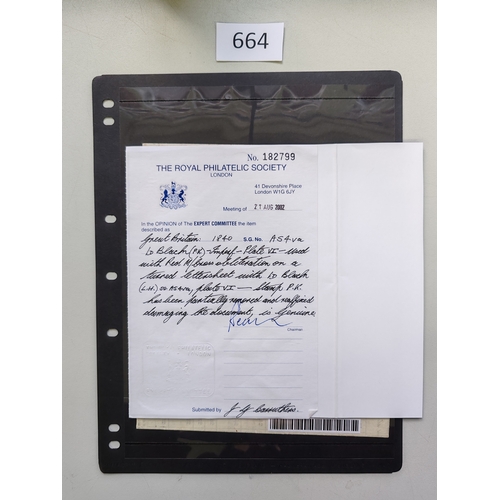 664
No. 182799
THE ROYAL PHILATELIC SOCIETY
LONDON
41 Devonshire Place
London W1G 6JY
Meeting of 21 AUG 2002
In the OPINION of The EXPERT COMMITTEE the item
described as
Great Britain: 1840 S.G. No. AS41
1d Black (P.K.) - Imperf - Plate VI - used
with Red M/Cross obliteration on a
lettersheet with 1d Black
(L.H.) AS41, plate VI — Stamp P.K.
has been partially removed and reaffixed
damaging the document, is genuine
Chairman
Submitted by